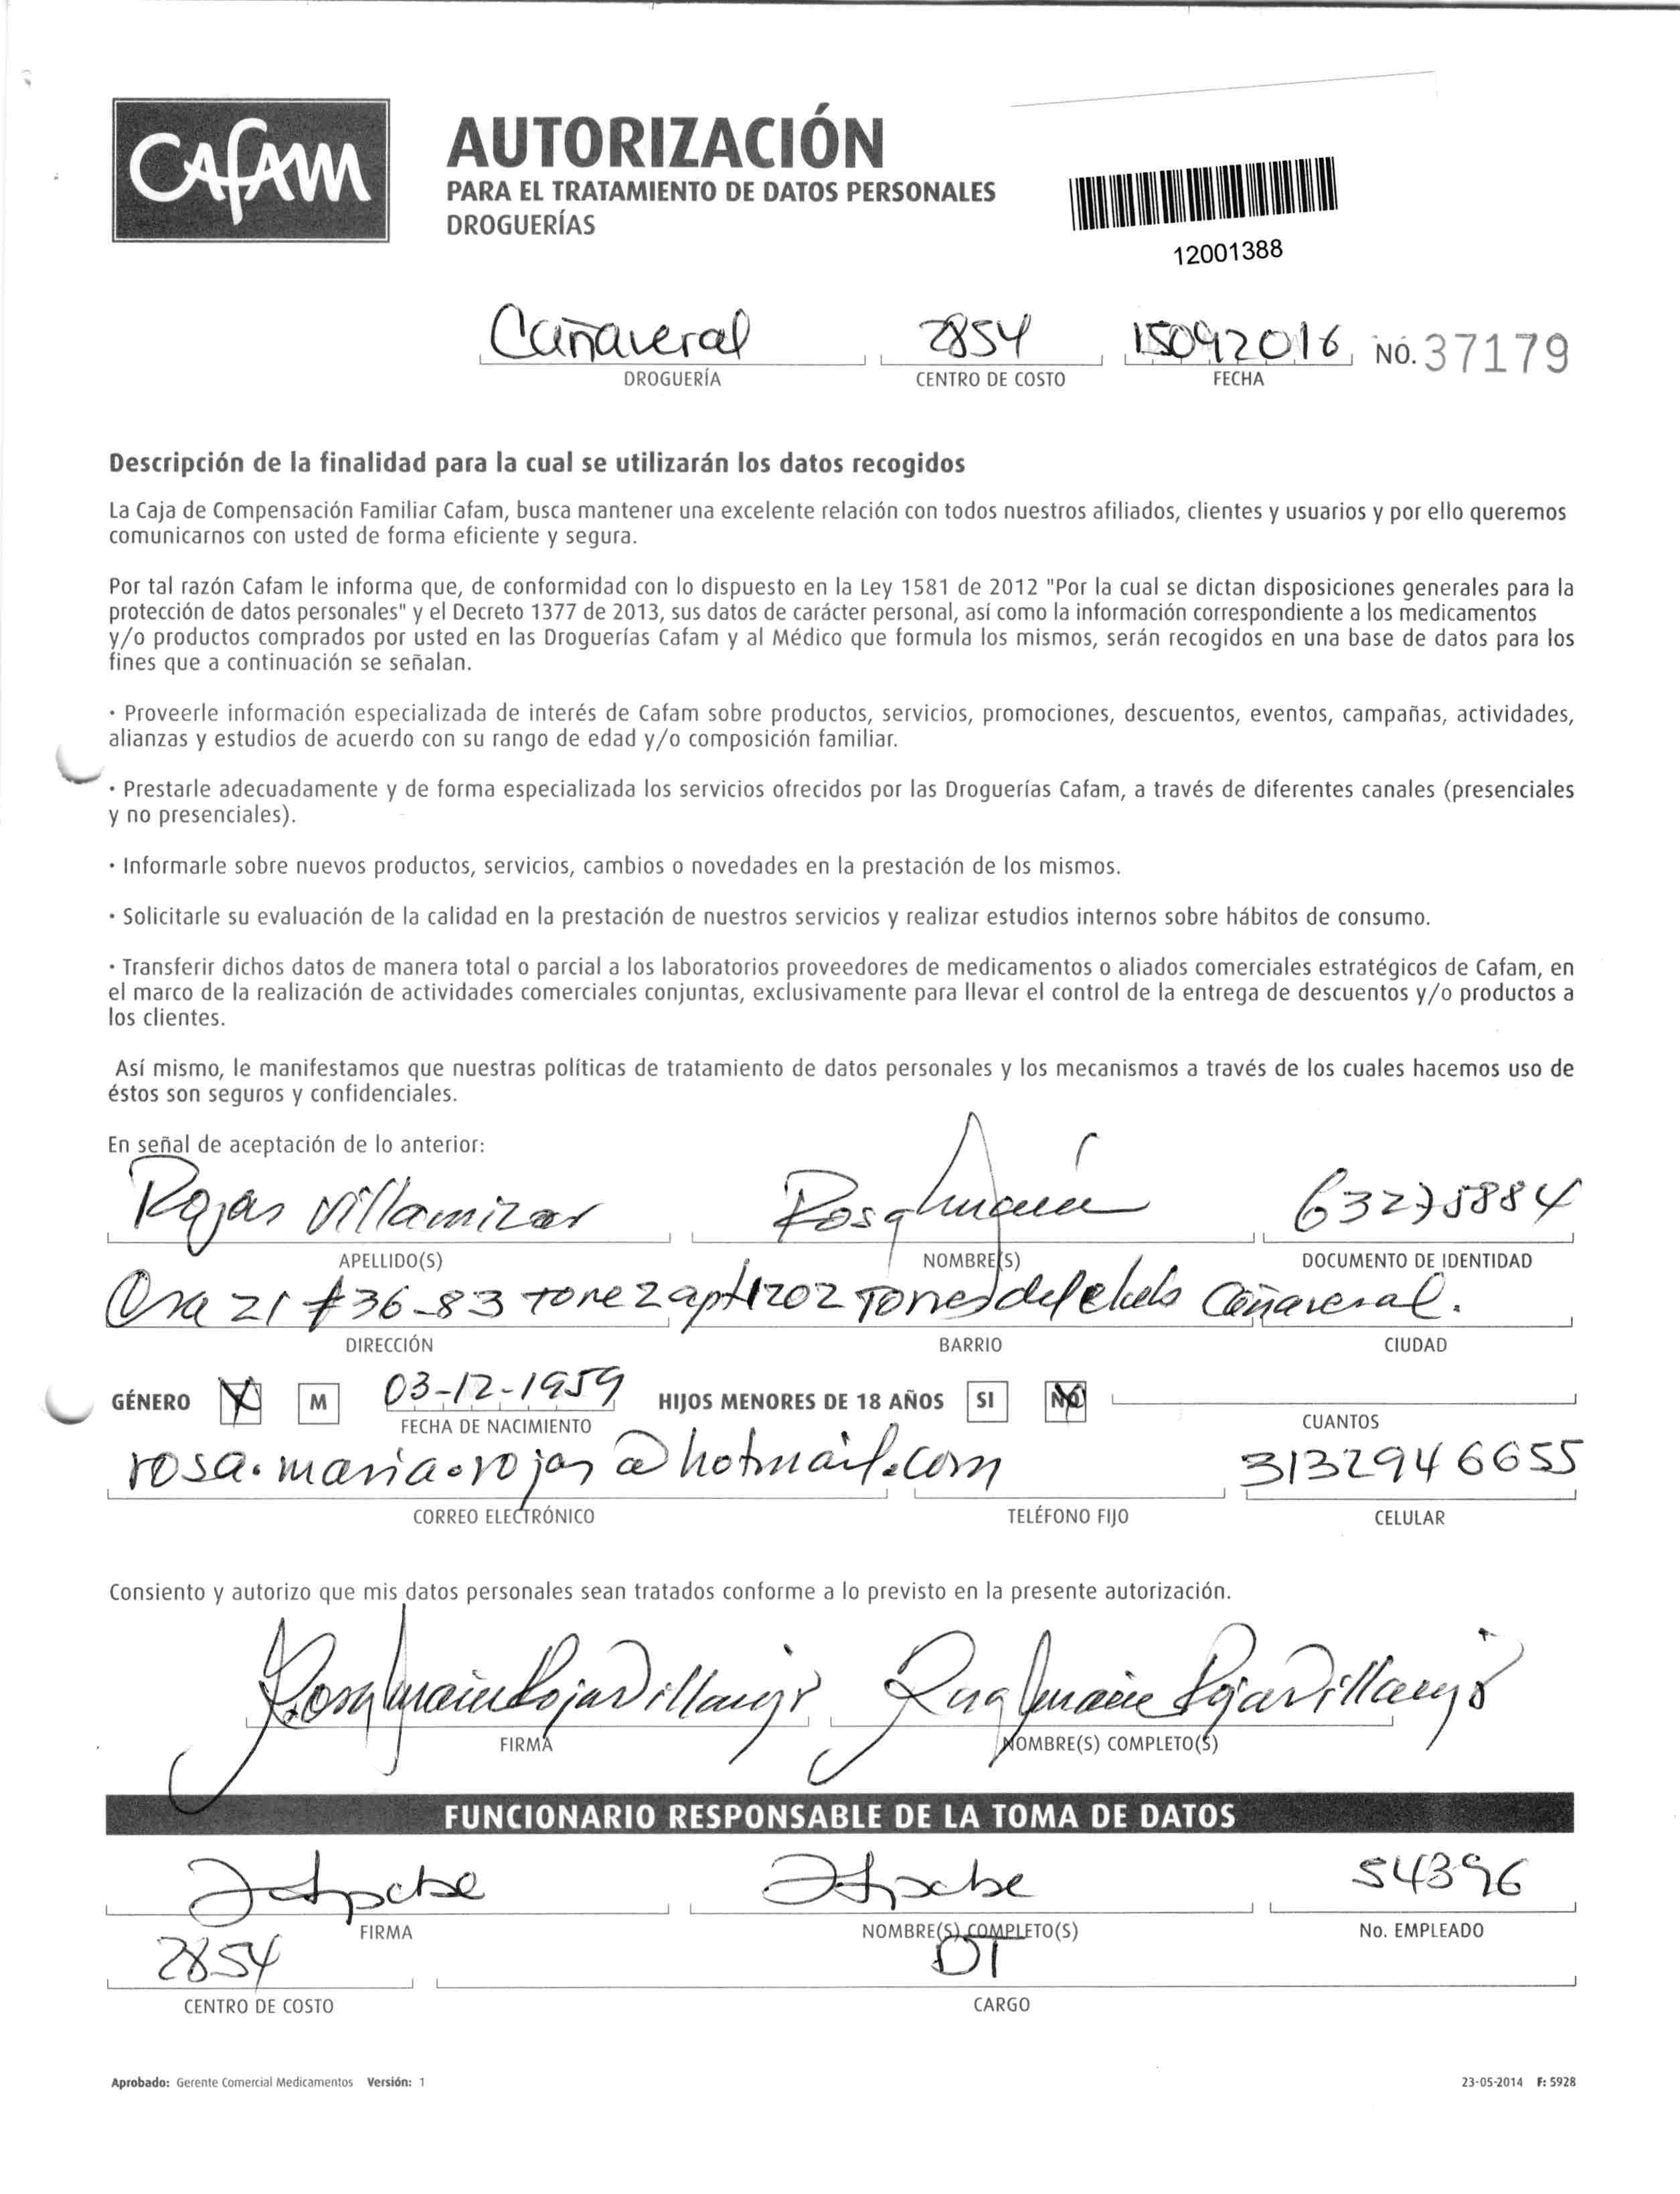 CAFAM
AUTORIZACIÓN
PARA EL TRATAMIENTO DE DATOS PERSONALES
DROGUERÍAS
12001388
Cañaveral 2854 15042016 NO. 37179
DROGUERÍA CENTRO DE COSTO FECHA
Descripción de la finalidad para la cual se utilizarán los datos recogidos
La Caja de Compensación Familiar Cafam, busca mantener una excelente relación con todos nuestros afiliados, clientes y usuarios y por ello queremos
comunicarnos con usted de forma eficiente y segura.
Por tal razón Cafam le informa que, de conformidad con lo dispuesto en la Ley 1581 de 2012 "Por la cual se dictan disposiciones generales para la
protección de datos personales" y el Decreto 1377 de 2013, sus datos de carácter personal, así como la información correspondiente a los medicamentos
y/o productos comprados por usted en las Droguerías Cafam y al Médico que formula los mismos, serán recogidos en una base de datos para los
fines que a continuación se señalan.
· Proveerle información especializada de interés de Cafam sobre productos, servicios, promociones, descuentos, eventos, campañas, actividades,
alianzas y estudios de acuerdo con su rango de edad y/o composición familiar.
· Prestarle adecuadamente y de forma especializada los servicios ofrecidos por las Droguerías Cafam, a través de diferentes canales (presenciales
y no presenciales).
· Informarle sobre nuevos productos, servicios, cambios o novedades en la prestación de los mismos.
· Solicitarle su evaluación de la calidad en la prestación de nuestros servicios y realizar estudios internos sobre hábitos de consumo.
· Transferir dichos datos de manera total o parcial a los laboratorios proveedores de medicamentos o aliados comerciales estratégicos de Cafam, en
el marco de la realización de actividades comerciales conjuntas, exclusivamente para llevar el control de la entrega de descuentos y/o productos a
los clientes.
Así mismo, le manifestamos que nuestras políticas de tratamiento de datos personales y los mecanismos a través de los cuales hacemos uso de
éstos son seguros y confidenciales.
En señal de aceptación de lo anterior:
Rojas Villamizar Rosa María 63275884
APELLIDO(S) NOMBRE(S) DOCUMENTO DE IDENTIDAD
Cra 21 #36-83 torre 2 apt 1202 Torres del Cañaveral.
DIRECCIÓN BARRIO CIUDAD
GÉNERO X M 03-12-1959 HIJOS MENORES DE 18 AÑOS SI NO
FECHA DE NACIMIENTO CUANTOS
rosa.maria.rojas@hotmail.com 3132946655
CORREO ELECTRÓNICO TELÉFONO FIJO CELULAR
Consiento y autorizo que mis datos personales sean tratados conforme a lo previsto en la presente autorización.
Rosa María Rojas Villamizar Rosa María Rojas Villamizar
FIRMA NOMBRE(S) COMPLETO(S)
FUNCIONARIO RESPONSABLE DE LA TOMA DE DATOS
54396
FIRMA NOMBRE(S) COMPLETO(S) No. EMPLEADO
2854 DT
CENTRO DE COSTO CARGO
Aprobado: Gerente Comercial Medicamentos Versión: 1 23-05-2014 F: 5928